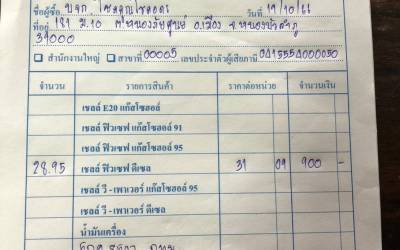 ชื่อผู้ซื้อ บจก. โชคคูณโชคอดร วันที่ 19/10/66
ที่อยู่ 181 ม.10 ต.หนองภัยศูนย์ อ.เมือง จ.หนองบัวลำภู
39000
สำนักงานใหญ่ สาขาที่ 00005 เลขประจำตัวผู้เสียภาษี 0415554000050
จำนวน รายการสินค้า ราคาต่อหน่วย จำนวนเงิน
เชลล์ E20 แก๊สโซฮอล์
เชลล์ ฟิวเซฟ แก๊สโซฮอล์ 91
เชลล์ ฟิวเซฟ แก๊สโซฮอล์ 95
28.95 เชลล์ ฟิวเซฟ ดีเซล 31 09 900 -
เชลล์ วี - เพาเวอร์ แก๊สโซฮอล์ 95
เชลล์ วี - เพาเวอร์ ดีเซล
น้ำมันเครื่อง